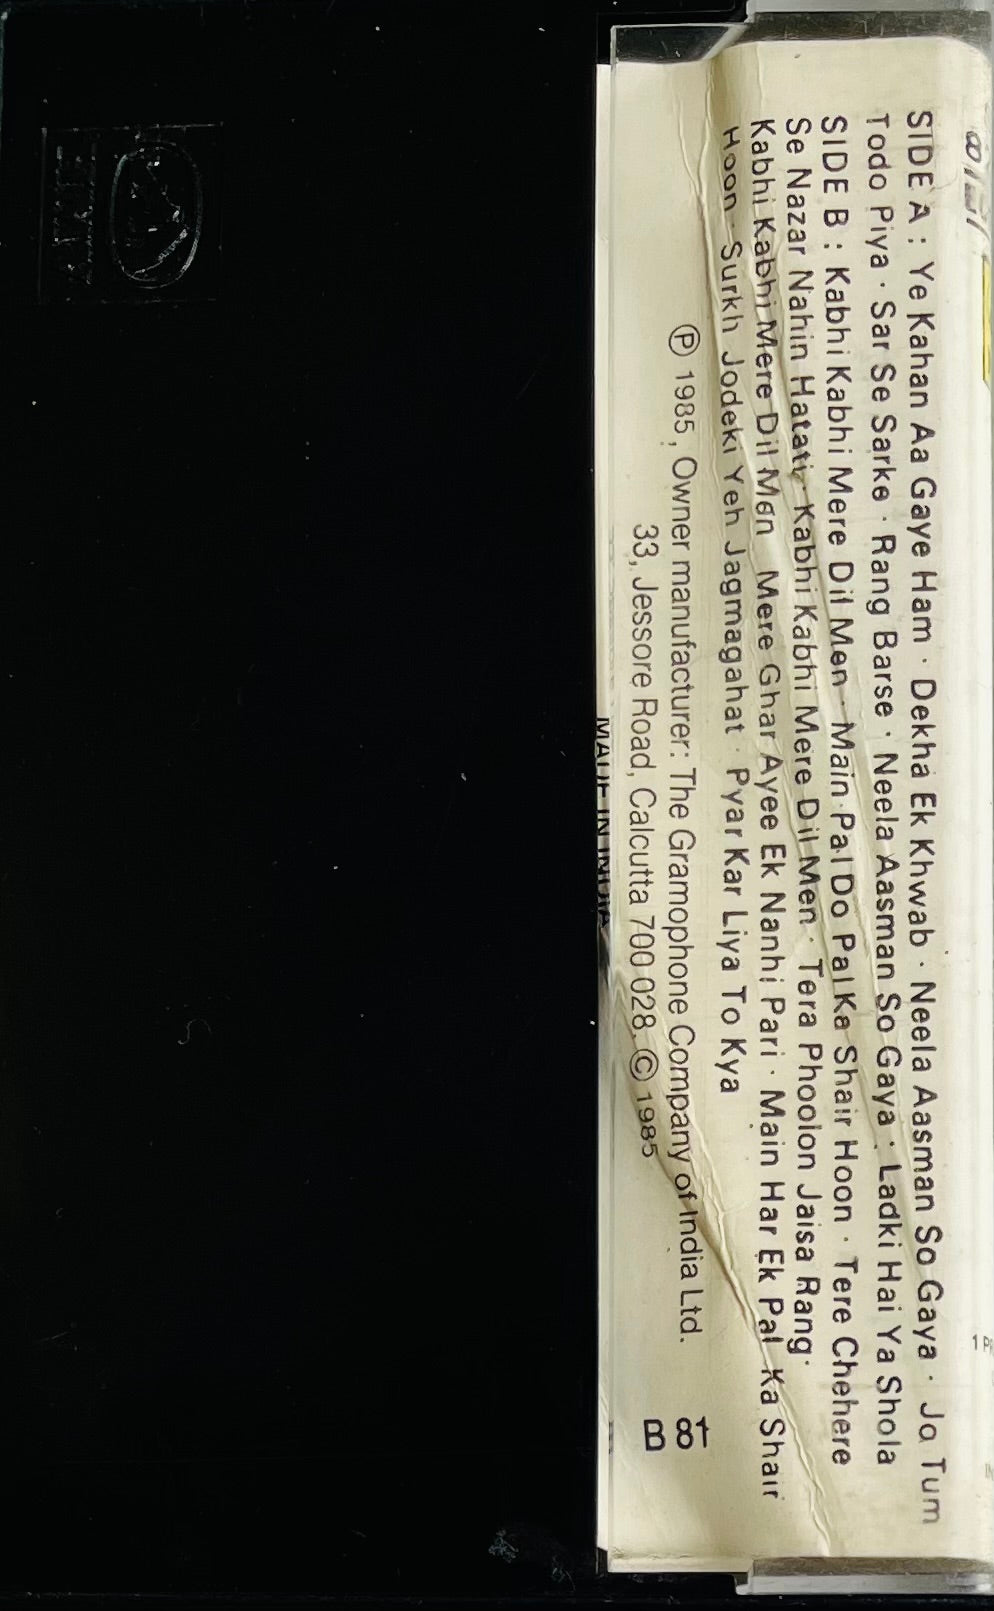 SIDE A : Ye Kahan Aa Gaye Ham · Dekha Ek Khwab · Neela Aasman So Gaya · Jo Tum
Todo Piya · Sar Se Sarke · Rang Barse · Neela Aasman So Gaya · Ladki Hai Ya Shola
SIDE B : Kabhi Kabhi Mere Dil Men · Main Pal Do Pal Ka Shair Hoon · Tere Chehere
Se Nazar Nahin Hatati · Kabhi Kabhi Mere Dil Men · Tera Phoolon Jaisa Rang ·
Kabhi Kabhi Mere Dil Men Mere Ghar Ayee Ek Nanhi Pari · Main Har Ek Pal Ka Shair
Hoon · Surkh Jodeki Yeh Jagmagahat · Pyar Kar Liya To Kya
Ⓟ 1985, Owner manufacturer: The Gramophone Company of India Ltd.
33, Jessore Road, Calcutta 700 028. © 1985
MADE IN INDIA